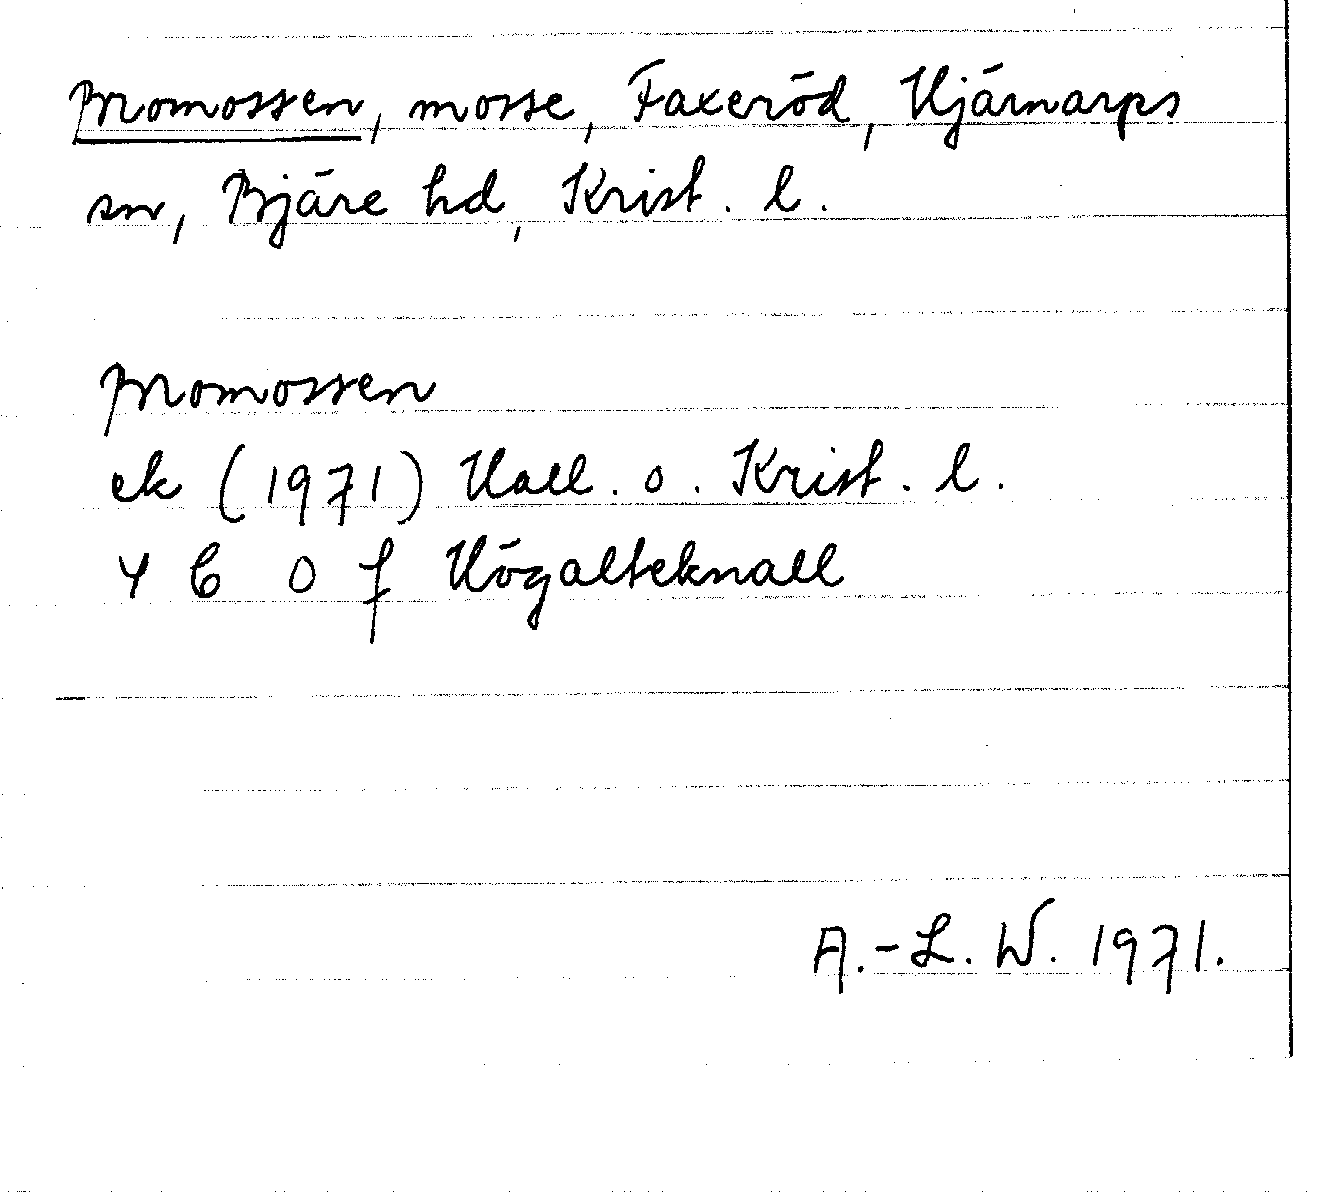 Momossen, mosse, Faxeröd, Hjärnarps
sn, Bjäre hd, Krist. l.
Momossen
ek (1971) Hall. o. Krist. l.
4 C 0 f Högalteknall
A.-L. W. 1971.